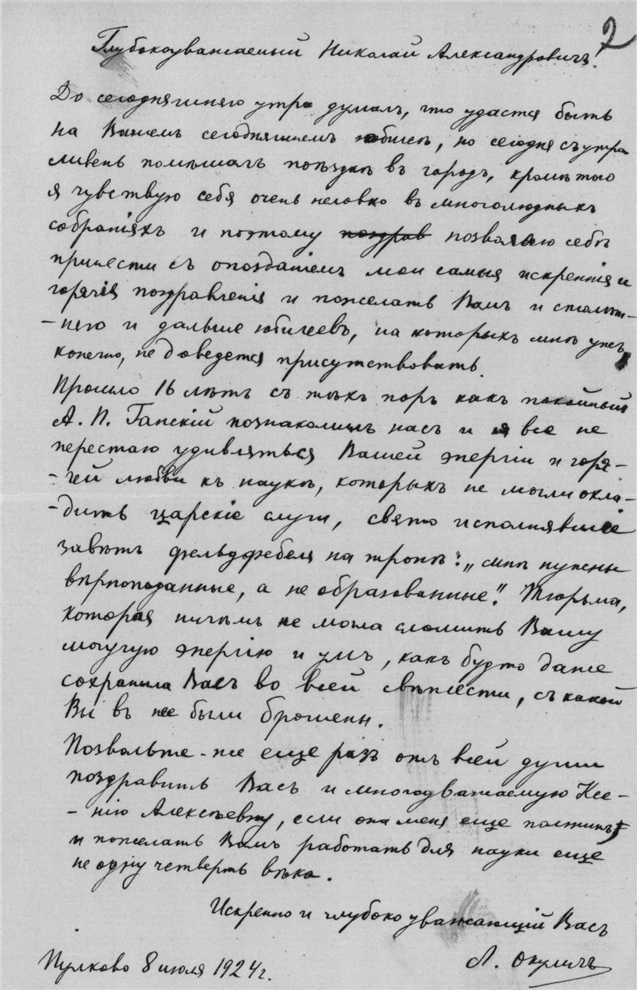 2
Глубокоуважаемый Николай Александровичъ!
До сегодняшняго утра думалъ, что удастся быть
на Вашемъ сегодняшнемъ юбилеѣ, но сегодня съ утра
ливень помѣшалъ поѣздкѣ въ городъ, кромѣ того
я чувствую себя очень неловко въ многолюдныхъ
собранiяхъ и поэтому поздрав позволяю себѣ
принести съ опозданiемъ мои самыя искреннiя и
горячiя поздравленiя и пожелать Вамъ и столѣт-
-няго и дальше юбилеевъ, на которыхъ мнѣ уже,
конечно, не доведется присутствовать.
Прошло 16 лѣтъ съ тѣхъ поръ какъ покойный
А. П. Ганскiй познакомилъ насъ и я все не
перестаю удивляться Вашей энергiи и горя-
-чей любви къ наукѣ, которыхъ не могли охла-
-дить царскiе слуги, свято исполнявшiе
завѣтъ фельдфебеля на тронѣ: „мнѣ нужны
вѣрноподанные, а не образованные“. Тюрьма,
которая ничѣмъ не могла сломить Вашу
могучую энергiю и умъ, какъ будто даже
сохранила Васъ во всей свѣжести, съ какой
Вы въ нее были брошены.
Позвольте-же еще разъ отъ всей души
поздравить Васъ и многоуважаемую Ксе-
-нiю Алексѣевну, если она меня еще помнитъ,
и пожелать Вамъ работать для науки еще
не одну четверть вѣка.
Искренно и глубоко уважающiй Васъ
Пулково 8 июля 1924 г.
Л. Окуличъ